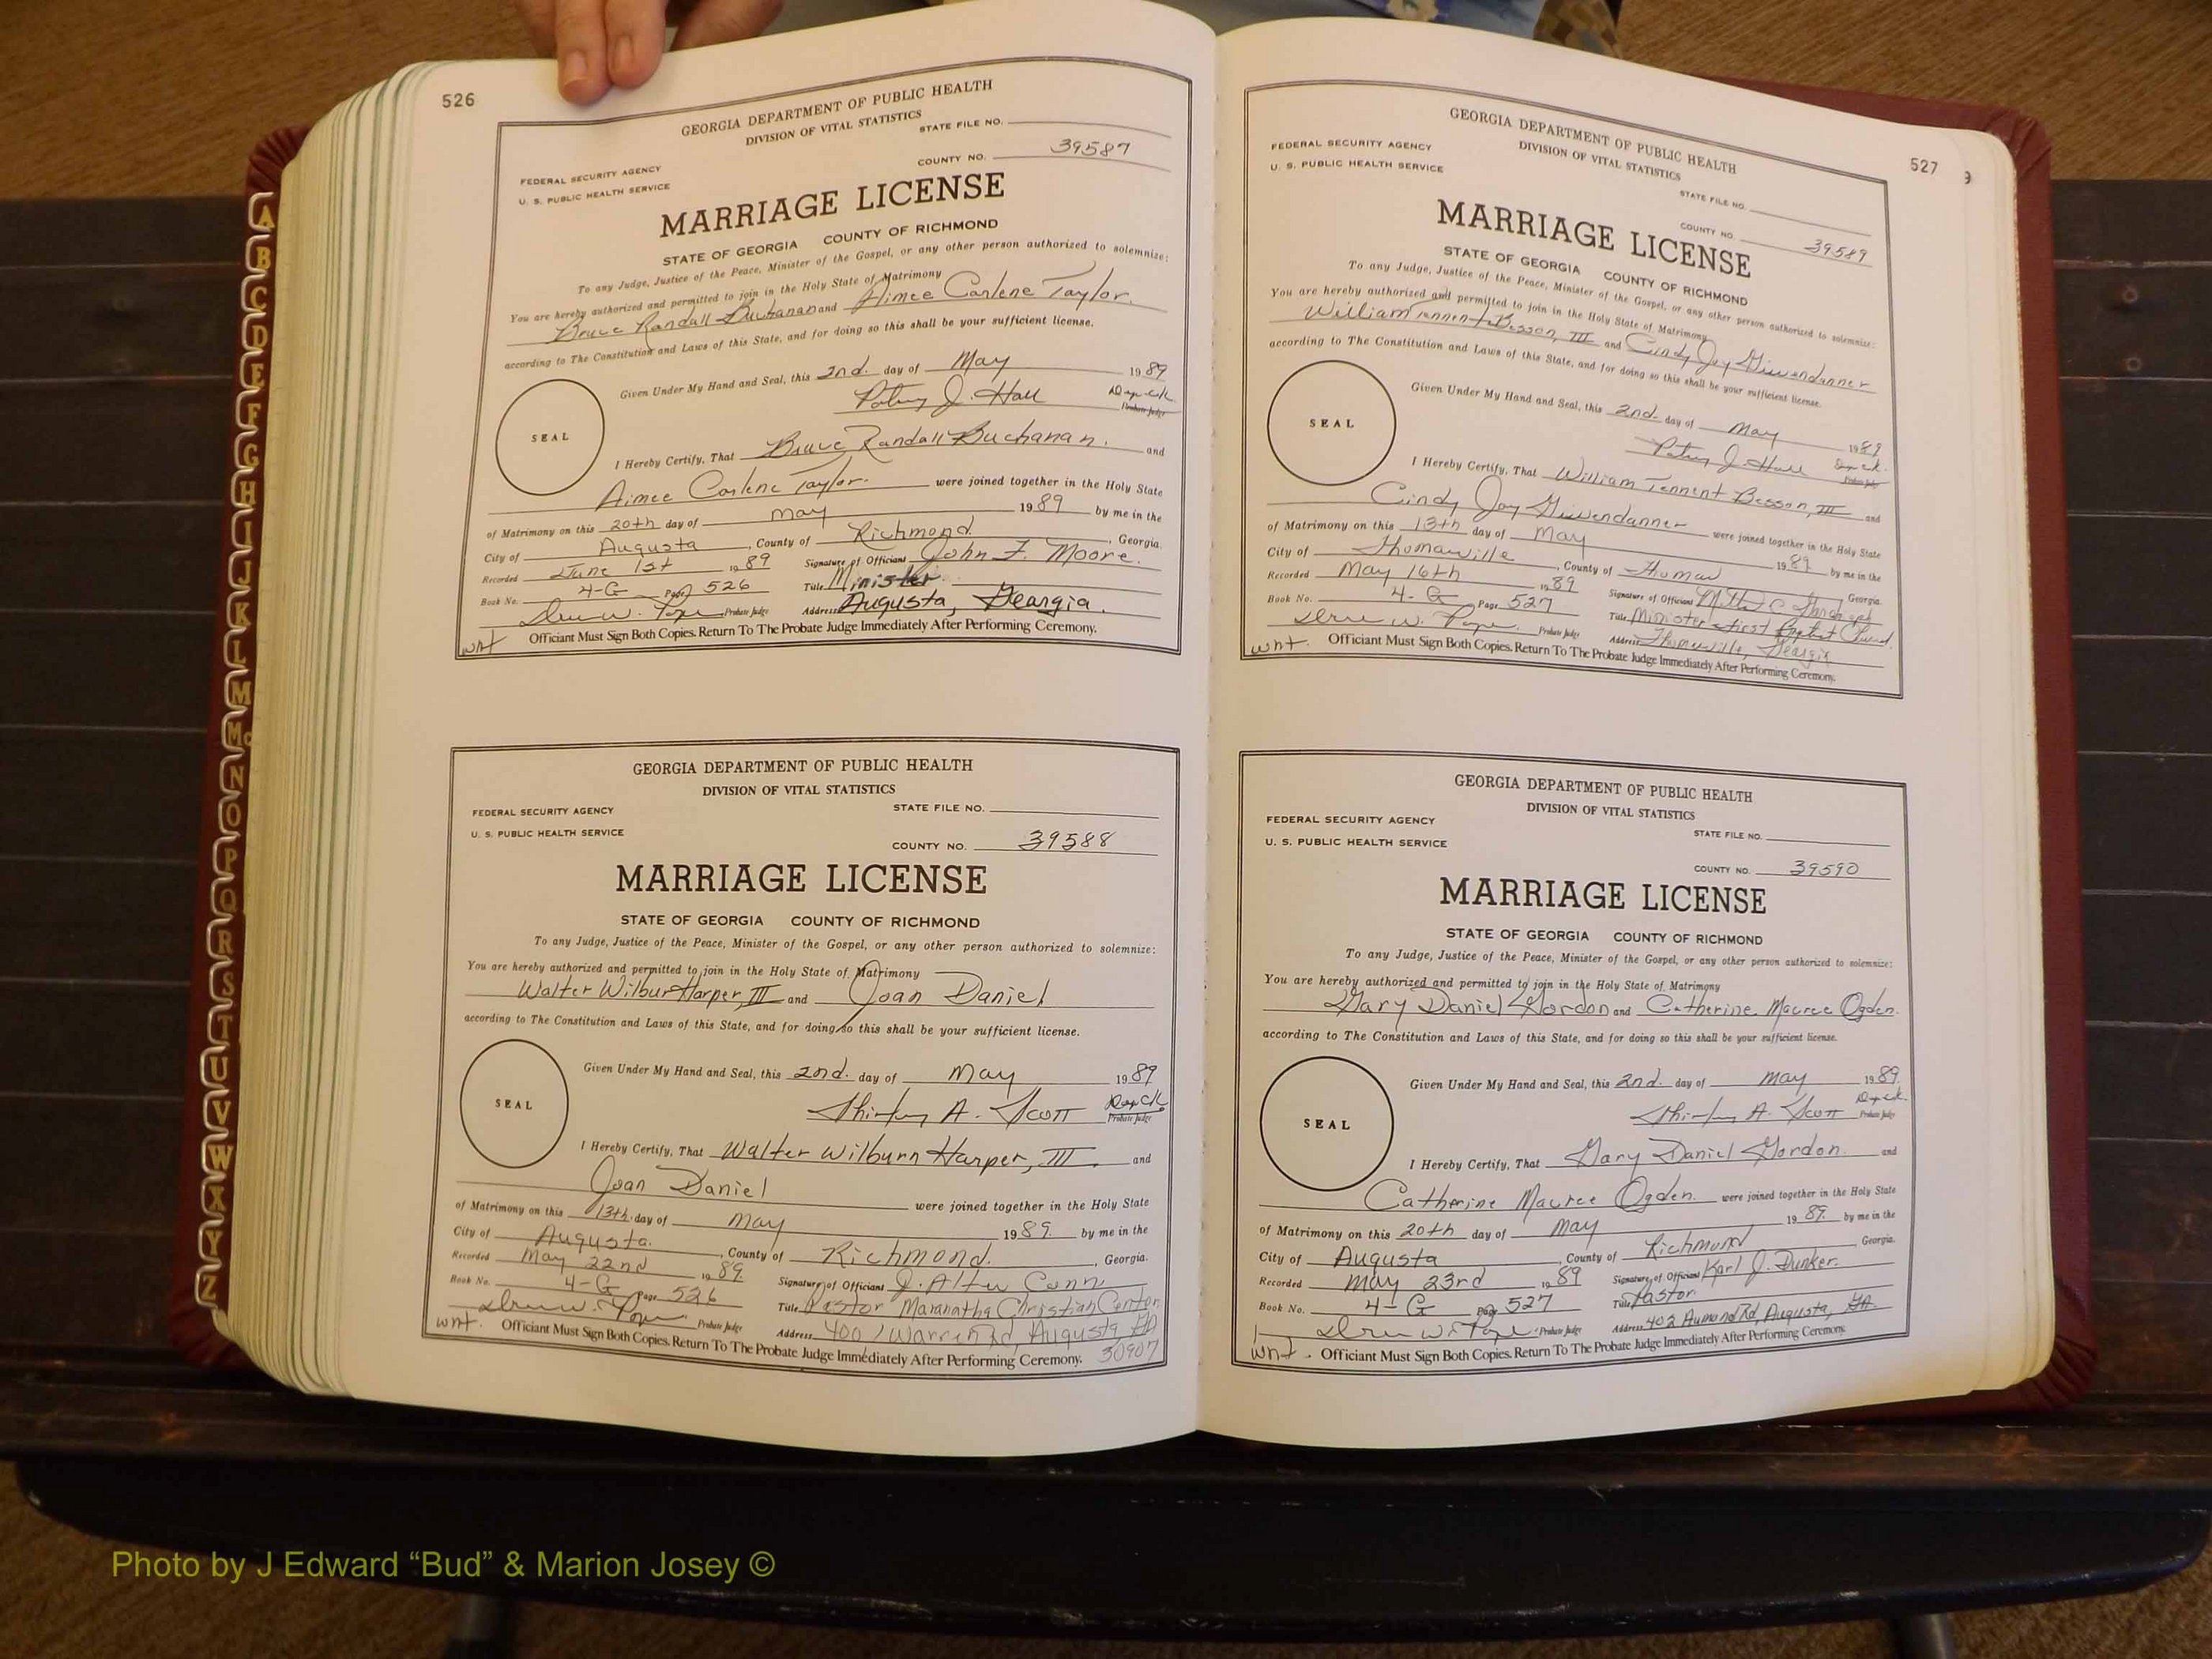 526
GEORGIA DEPARTMENT OF PUBLIC HEALTH
DIVISION OF VITAL STATISTICS
STATE FILE NO.
FEDERAL SECURITY AGENCY
COUNTY NO. 39587
U. S. PUBLIC HEALTH SERVICE
MARRIAGE LICENSE
STATE OF GEORGIA COUNTY OF RICHMOND
To any Judge, Justice of the Peace, Minister of the Gospel, or any other person authorized to solemnize:
You are hereby authorized and permitted to join in the Holy State of Matrimony
Bruce Randall Buchanan and Aimee Carlene Taylor.
according to The Constitution and Laws of this State, and for doing so this shall be your sufficient license.
Given Under My Hand and Seal, this 2nd. day of May 1989
Patsy J. Hall Dep Clk
Probate Judge
SEAL
I Hereby Certify, That Bruce Randall Buchanan. and
Aimee Carlene Taylor. were joined together in the Holy State
of Matrimony on this 20th day of May 1989 by me in the
City of Augusta, County of Richmond, Georgia.
Recorded June 1st 1989 Signature of Officiant John F. Moore.
Book No. 4-G Page 526 Title Minister
Probate Judge Address Augusta, Georgia.
wnt Officiant Must Sign Both Copies. Return To The Probate Judge Immediately After Performing Ceremony.
GEORGIA DEPARTMENT OF PUBLIC HEALTH
DIVISION OF VITAL STATISTICS
FEDERAL SECURITY AGENCY STATE FILE NO.
U. S. PUBLIC HEALTH SERVICE
COUNTY NO. 39588
MARRIAGE LICENSE
STATE OF GEORGIA COUNTY OF RICHMOND
To any Judge, Justice of the Peace, Minister of the Gospel, or any other person authorized to solemnize:
You are hereby authorized and permitted to join in the Holy State of Matrimony
Walter Wilburn Harper, III and Joan Daniel
according to The Constitution and Laws of this State, and for doing so this shall be your sufficient license.
Given Under My Hand and Seal, this 2nd. day of May 1989
Shirley A. Scott Dep Clk
Probate Judge
SEAL
I Hereby Certify, That Walter Wilburn Harper, III. and
Joan Daniel were joined together in the Holy State
of Matrimony on this 13th. day of May 1989. by me in the
City of Augusta., County of Richmond., Georgia.
Recorded May 22nd 1989 Signature of Officiant
Book No. 4-G Page 526 Title Pastor Maranatha Christian Center
Probate Judge Address 400 Warren Rd, Augusta GA
wnt. Officiant Must Sign Both Copies. Return To The Probate Judge Immediately After Performing Ceremony. 30907
527
GEORGIA DEPARTMENT OF PUBLIC HEALTH
FEDERAL SECURITY AGENCY
DIVISION OF VITAL STATISTICS
U. S. PUBLIC HEALTH SERVICE
STATE FILE NO.
COUNTY NO. 39589
MARRIAGE LICENSE
STATE OF GEORGIA COUNTY OF RICHMOND
To any Judge, Justice of the Peace, Minister of the Gospel, or any other person authorized to solemnize:
You are hereby authorized and permitted to join in the Holy State of Matrimony
William Tennent Besson, III and Cindy Joy Giwendanner
according to The Constitution and Laws of this State, and for doing so this shall be your sufficient license.
Given Under My Hand and Seal, this 2nd. day of May 1989
Patsy J. Hall Dep Clk.
Probate Judge
SEAL
I Hereby Certify, That William Tennent Besson, III and
Cindy Joy Giwendanner were joined together in the Holy State
of Matrimony on this 13th day of May 1989 by me in the
City of Thomasville, County of Thomas Georgia.
Recorded May 16th 1989 Signature of Officiant
Book No. 4-G Page 527 Title Minister First Baptist Church
Probate Judge Address Thomasville, Georgia
wnt. Officiant Must Sign Both Copies. Return To The Probate Judge Immediately After Performing Ceremony.
GEORGIA DEPARTMENT OF PUBLIC HEALTH
DIVISION OF VITAL STATISTICS
FEDERAL SECURITY AGENCY
STATE FILE NO.
U. S. PUBLIC HEALTH SERVICE
COUNTY NO. 39590
MARRIAGE LICENSE
STATE OF GEORGIA COUNTY OF RICHMOND
To any Judge, Justice of the Peace, Minister of the Gospel, or any other person authorized to solemnize:
You are hereby authorized and permitted to join in the Holy State of Matrimony
Gary Daniel Gordon and Catherine Mauree Ogden.
according to The Constitution and Laws of this State, and for doing so this shall be your sufficient license.
Given Under My Hand and Seal, this 2nd. day of May 1989.
Shirley A. Scott Dep Clk.
Probate Judge
SEAL
I Hereby Certify, That Gary Daniel Gordon. and
Catherine Mauree Ogden. were joined together in the Holy State
of Matrimony on this 20th day of May 1989. by me in the
City of Augusta, County of Richmond Georgia.
Recorded May 23rd 1989 Signature of Officiant Karl J. Dunker.
Book No. 4-G Page 527 Title Pastor.
Probate Judge Address 402 Aumond Rd, Augusta, GA.
wnt. Officiant Must Sign Both Copies. Return To The Probate Judge Immediately After Performing Ceremony.
A
B
C
D
E
F
G
H
I
J
K
L
M
Mc
N
O
P
Q
R
S
T
U
V
W
X
Y
Z
Photo by J Edward “Bud” & Marion Josey ©